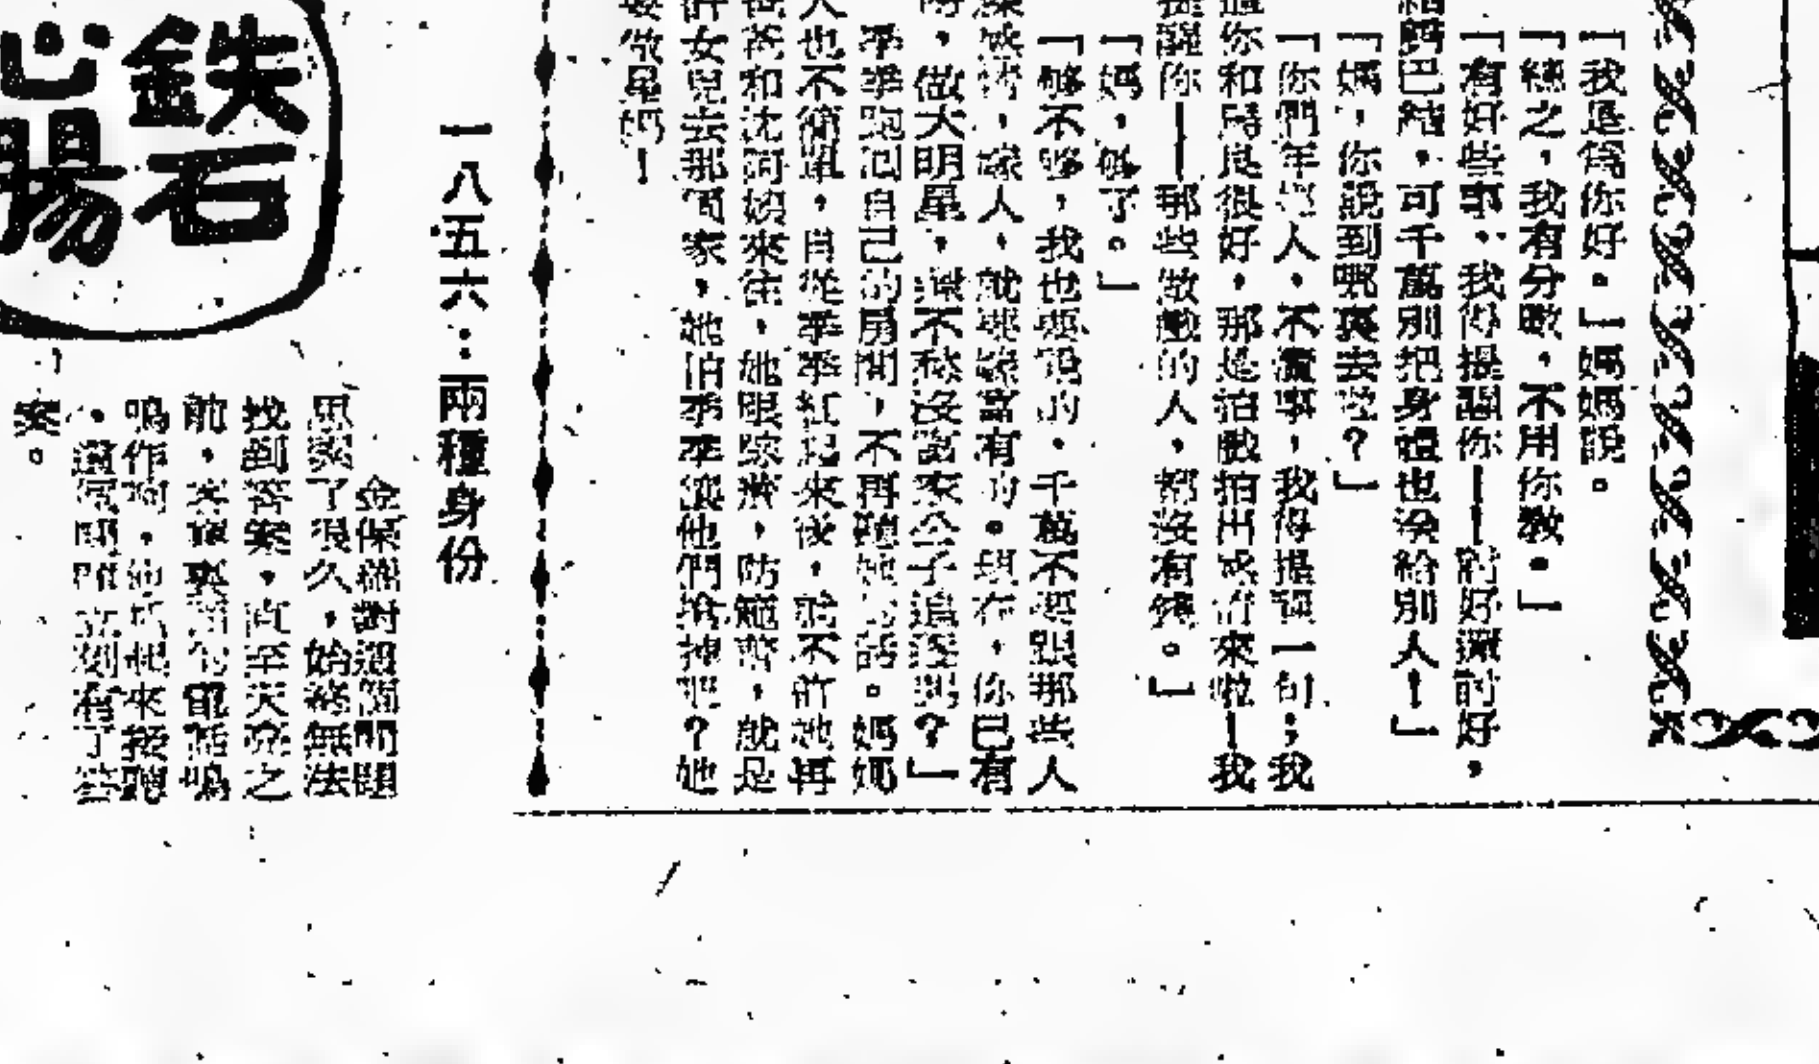 「我是為你好。」媽媽說。
「總之，我有分數，不用你教。」
「有好些事，我得提醒你——討好還討好，
巴結，可千萬別把身體也決給別人！」
「媽，你說到哪裏去啦？」
「你們年輕人，不懂事，我得提醒一句；我
你和 良很好，那是拍戲拍出感情來啦！我
提醒你——那些做戲的人，都沒有錢。」
「媽，够了。」
「够不够，我也要說的，千萬不要跟那些人
，嫁人，就要嫁富有的。現在，你已有
，做大明星，還不愁沒富家公子追逐嗎？」
準準跑回自己的房間，不再聽她的話。媽媽
人也不簡單，自從準準紅起來後，就不許她再
爸爸和沈阿姨來往，她眼睁 ，防範 ，就是
許女兒去那個家，她怕準準讓他們搶掉吧？她
要做星媽！
一八五六：兩種身份
鉄石
心腸
金保 對這個問題
思索了很久，始終無法
找到答案，直至天亮之
前，客 裏 電話嗚
嗚作响，他 起來接聽
，這個問題立刻有了答
案。